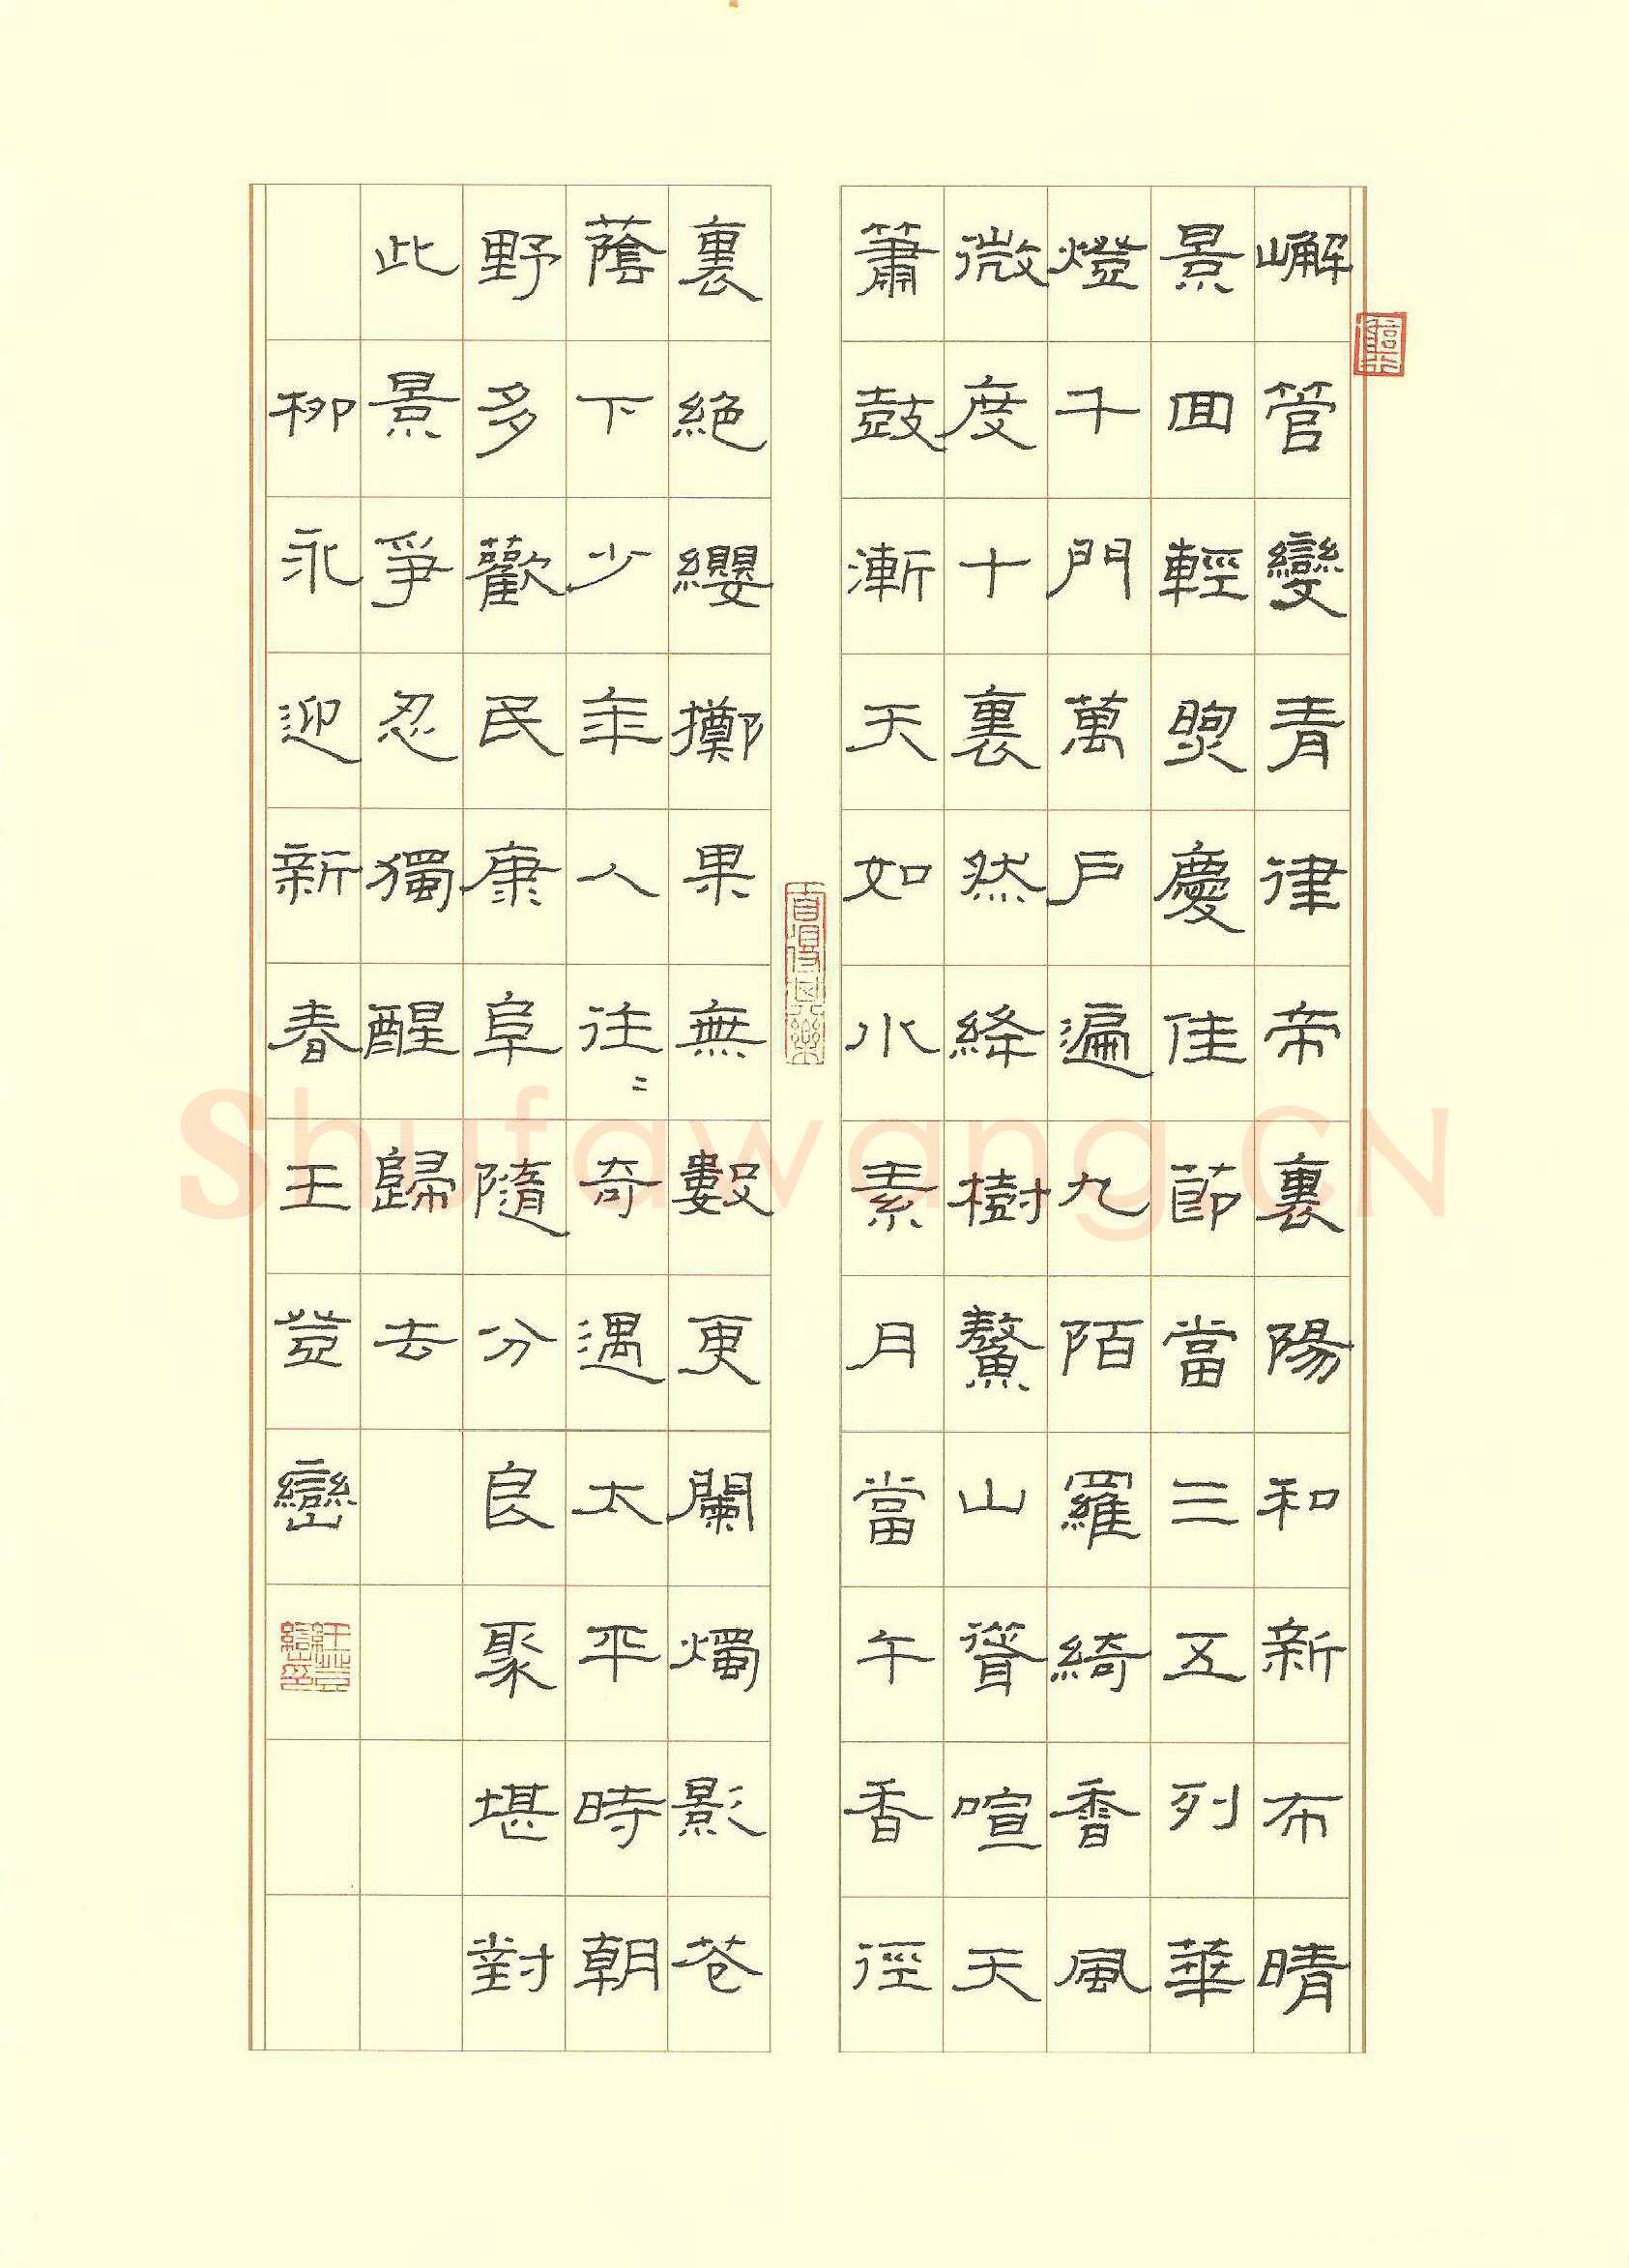 嶰管變青律帝裏陽和新布晴
景回輕煦慶佳節當三五列華
燈千門萬戶遍九陌羅綺香風
微度十裏然絳樹鰲山聳喧天
簫鼓漸天如水素月當午香徑
裏絕纓擲果無數更闌燭影花
蔭下少年人往〻奇遇太平時朝
野多歡民康阜隨分良聚堪對
此景爭忍獨醒歸去
柳永迎新春王登巒
王登巒印
Shufawang.CN